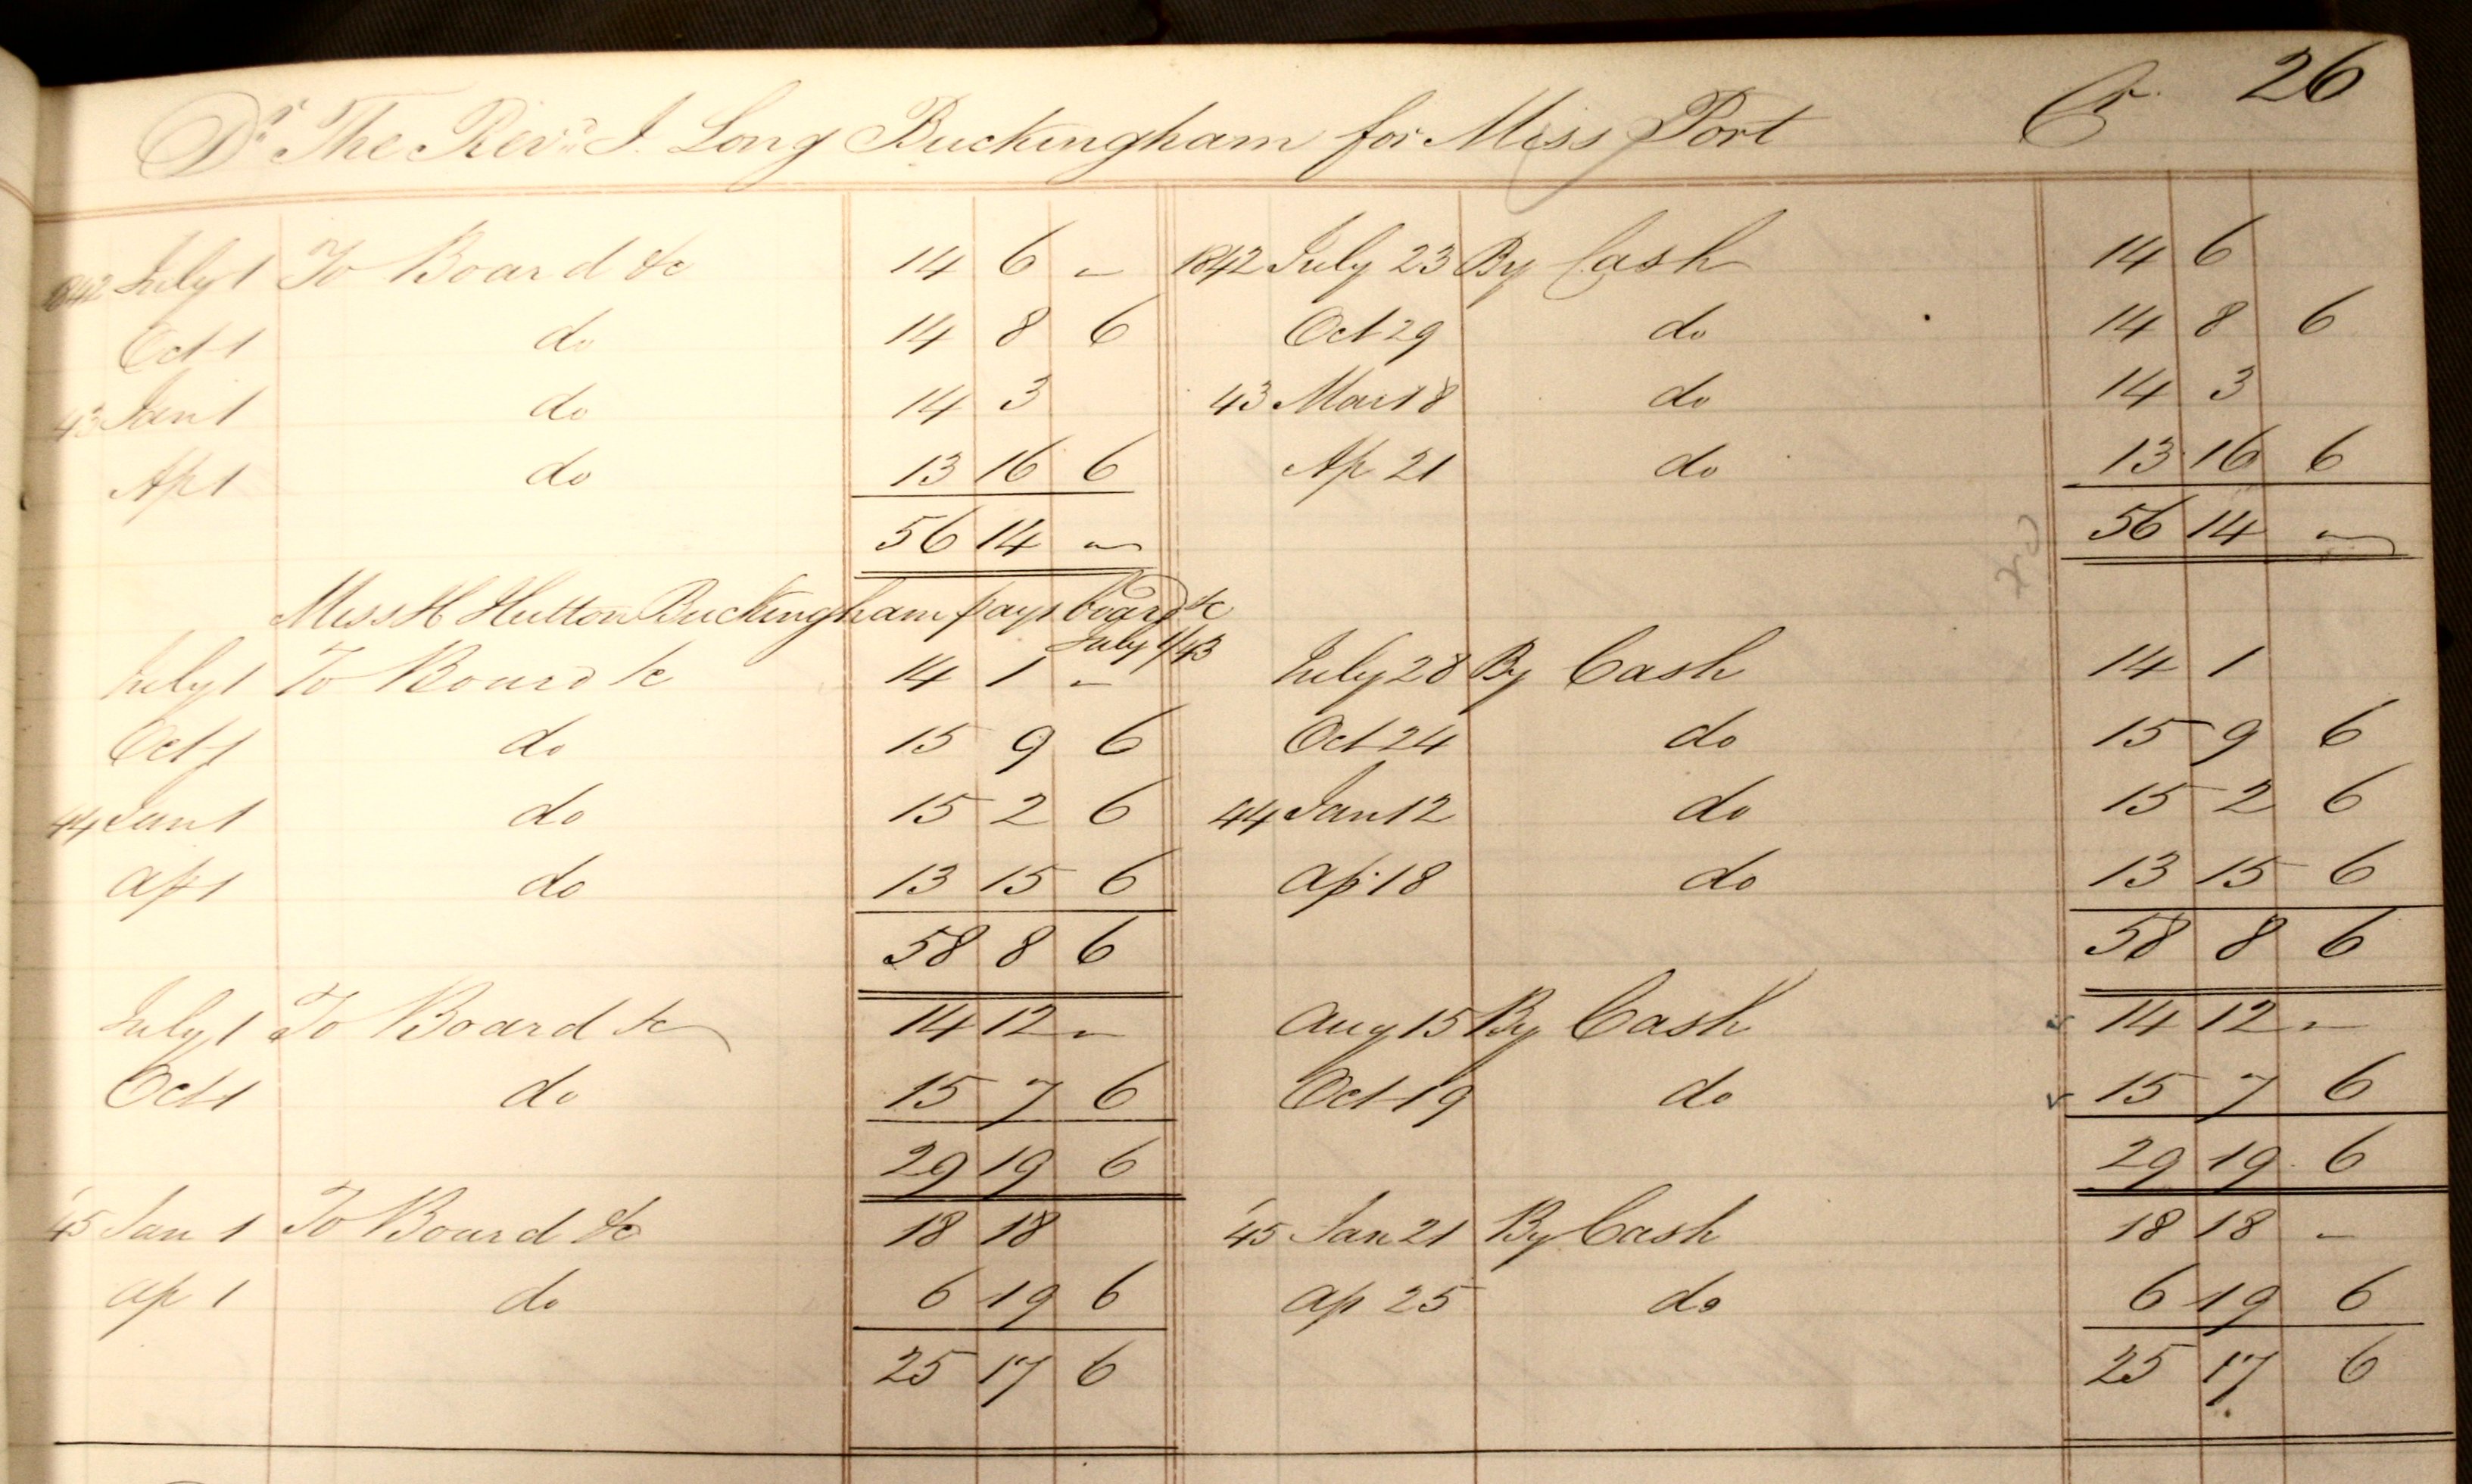 Dr The Revd J. Long Buckingham for Miss Port Cr 26
1842 July 1 To Board &c 14 6 – 1842 July 23 By Cash 14 6
Oct 1 do 14 8 6 Oct 29 do 14 8 6
43 Jan 1 do 14 3 43 Mar 18 do 14 3
Ap 1 do 13 16 6 Ap 21 do 13 16 6
56 14 – 56 14 –
Miss H Hutton Buckingham pays board &c
July 1/43
July 1 To Board &c 14 1 – July 28 By Cash 14 1
Oct 1 do 15 9 6 Oct 24 do 15 9 6
44 Jan 1 do 15 2 6 44 Jan 12 do 15 2 6
ap 1 do 13 15 6 ap 18 do 13 15 6
58 8 6 58 8 6
July 1 To Board &c 14 12 – Aug 15 By Cash 14 12 –
Oct 1 do 15 7 6 Oct 19 do 15 7 6
29 19 6 29 19 6
45 Jan 1 To Board &c 18 18 45 Jan 21 By Cash 18 18 –
ap 1 do 6 19 6 ap 25 do 6 19 6
25 17 6 25 17 6